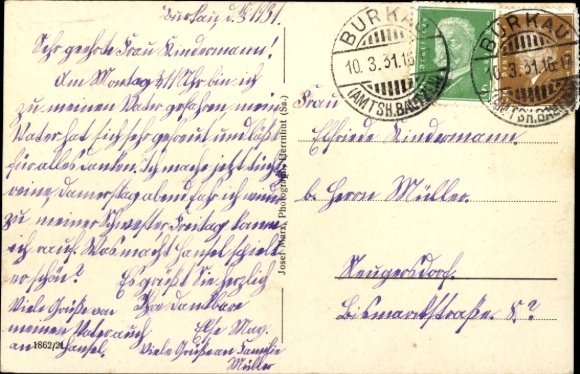 Burkau, d. 10.3.31.
Sehr geehrte Frau Kindermann!
Am Montag 5/11 Uhr bin ich
zu meinen Vater gefahren mein
Vater hat sich sehr gefreut und läßt
für alles danken. Ich mache jetzt
reine, Donnerstag abend fahr ich wieder
zu meiner Schwester Freitag komme
ich rauf. Was macht Hansel spielt
er schön? Es grüßt Sie herzlich
Viele Grüße von Ihre dankbare
meinen Vater auch Else May.
an Hansel. Viele Grüße an Familie
Müller
1862/21
Josef Marx, Photograph, Herrnhut (Sa.)
BURKAU
10.3.31.16-17
(AMTSH. BAUTZEN)
BURKAU
10.3.31.16-17
(AMTSH. BAUTZEN)
Frau
Elfriede Kindermann.
b. Herrn Müller.
Neugersdorf.
Bismarkstraße. 8.?